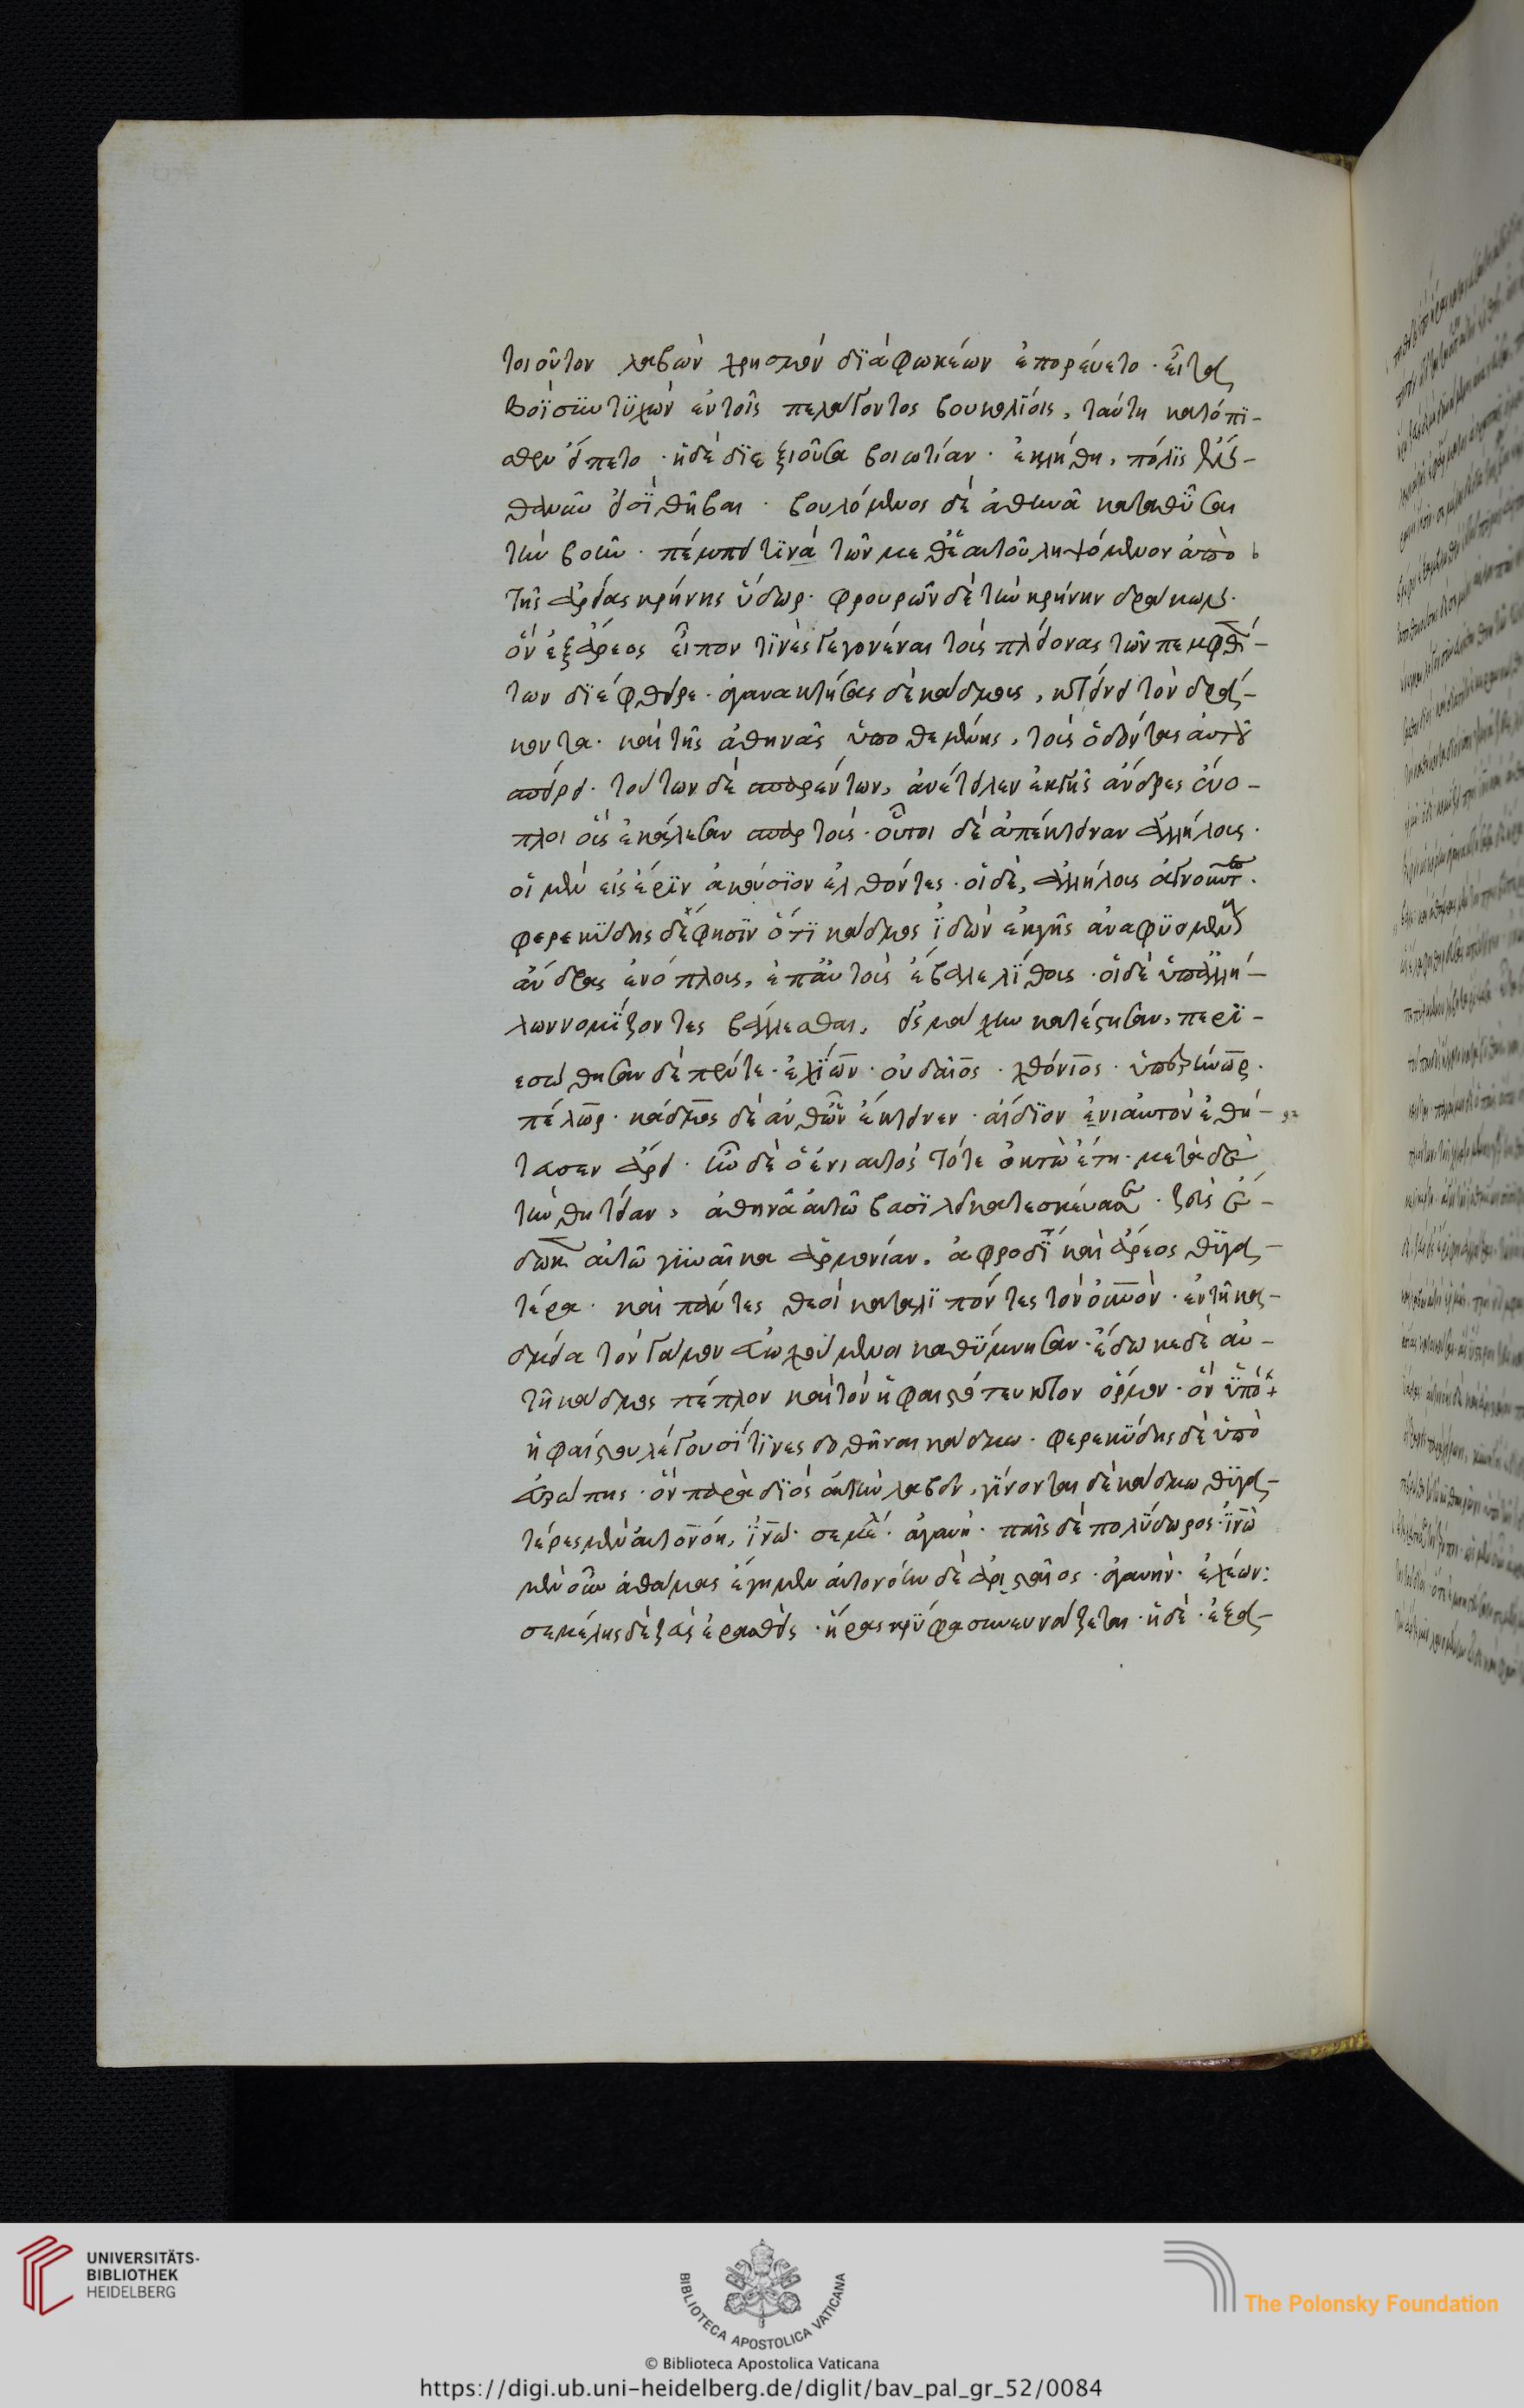 τοιοῦτον λαβὼν χρησμὸν δϊὰ φωκέων ἐπορεύετο· εἶτα
βοῒ συντυχὼν ἐν τοῖς πελάγοντος βουκολίοις, ταύτη κατόπι-
σθεν εἵπετο· ἡ δὲ διεξιοῦσα βοιωτίαν· ἐκλήθη, πόλις
ἔνθα νῦν εἰσῒ θῆβαι· βουλόμενος δὲ ἀθηνᾶ καταθῦσαι
τὴν βοῦν· πέμπει τινὰ τῶν μεθ' ἑαυτοῦ ληψόμενον ἀπὸ
τῆς ἀρείας κρήνης ὕδωρ· φρουρῶν δὲ τὴν κρήνην δράκων·
ὃν ἐξ ἄρεος εἶπον τινὲς γεγονέναι τοὺς πλείονας τῶν πεμφθέ-
των διέφθειρε· ἀγανακτήσας δὲ κάδμος, κτείνει τὸν δρά-
κοντα· καὶ τῆς ἀθηνᾶς ὑποθεμένης, τοὺς ὀδόντας αὐτοῦ
σπείρει· τούτων δὲ σπαρέντων, ἀνέτειλεν ἐκ γῆς ἄνδρες ἔνο-
πλοι οὓς ἐκάλεσαν σπαρτούς· οὗτοι δὲ ἀπέκτειναν ἀλλήλους·
οἱ μὲν εἰς ἔριν ἀκούσϊον ἐλθόντες· οἱ δὲ, ἀλλήλους ἀγνοοῦντες·
φερεκύδης δὲ φησῒν ὅτϊ κάδμος ἰδὼν ἐκ γῆς ἀναφυσμένους
ἄνδρας ἐνόπλους, ἐπ' αὐτοὺς ἔβαλλε λίθους· οἱ δὲ ὑπ' ἀλλή-
λων νομίζοντες βάλλεσθαι, εἰς μάχην κατέστησαν, περϊ-
εσώθησαν δὲ πέντε· ἐχίων· οὐδαῖος· χθόνιος· ὑπερήνωρ·
πέλωρ· κάδμος δὲ ἀνθ' ὧν ἔκτεινεν· ἀΐδιον ἐνιαυτὸν ἐθή-
τευσεν ἄρει· ἦν δὲ ὁ ἐνιαυτὸς τότε ὀκτὼ ἔτη· μετὰ δὲ
τὴν θητείαν, ἀθηνᾶ αὐτῶ βασιλείαν κατεσκεύασε· ζεὺς ἔ-
δωκεν αὐτῶ γυναῖκα ἁρμονίαν, ἀφροδίτης καὶ ἄρεος θυγα-
τέρα· καὶ πάντες θεοὶ καταλϊπόντες τὸν οὐρανὸν· ἐν τῆ κα-
δμεία τὸν γάμον εὐωχούμενοι καθύμνησαν· ἔδωκε δὲ αὐ-
τῆ κάδμος πέπλον καὶ τὸν ἡφαιστότευκτον ὅρμον· ὃν ὑπὸ
ἡφαίστου λέγουσϊ τινες δοθῆναι κάδμω· φερεκύδης δὲ ὑπὸ
εὐρώπης· ὃν παρὰ διὸς αὐτὴν λαβεῖν, γίνονται δὲ κάδμω θυγα-
τέρες μὲν αὐτονόη, ἰνώ· σεμέλη· ἀγαυή· παῖς δὲ πολύδωρος· ἰνὼ
μὲν οὖν ἀθάμας ἔγημεν αὐτονόην δὲ ἀρισταῖος· ἀγαυὴν· ἐχίων:
σεμέλης δὲ ζεὺς ἐρασθεὶς· ἥρας κρύφα συνευνάζεται· ἡ δὲ· ἐξα-
UNIVERSITÄTS-
BIBLIOTHEK
HEIDELBERG
BIBLIOTECA APOSTOLICA VATICANA
The Polonsky Foundation
© Biblioteca Apostolica Vaticana
https://digi.ub.uni-heidelberg.de/diglit/bav_pal_gr_52/0084